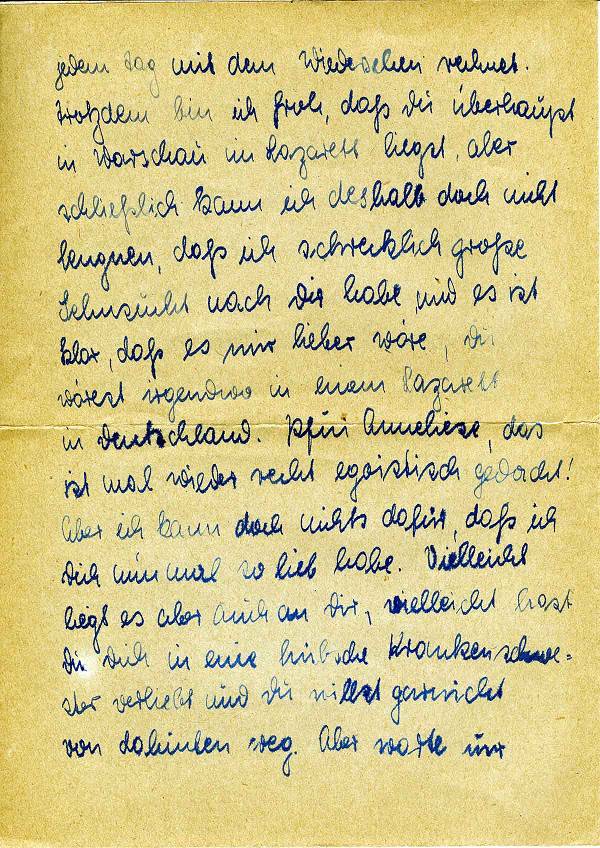 jedem Tag mit dem Wiedersehen rechnet.
Trotzdem bin ich froh, daß du überhaupt
in Warschau im Lazarett liegst, aber
schließlich kann ich deshalb doch nicht
leugnen, daß ich schrecklich große
Sehnsucht nach dir habe, und es ist
klar, daß es mir lieber wäre, du
wärest irgendwo in einem Lazarett
in Deutschland. Pfui Anneliese, das
ist mal wieder recht egoistisch gedacht!
Aber ich kann doch nichts dafür, daß ich
dich nun mal so lieb habe. Vielleicht
liegt es aber auch an dir, vielleicht hast
du dich in eine hübsche Krankenschwe=
ster verliebt und du willst garnicht
von dahinten weg. Aber warte nur